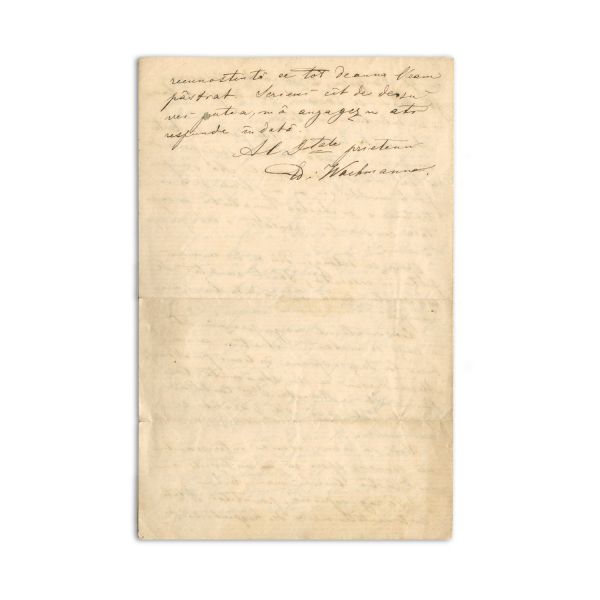 recunostintă ce tot deauna l'eam
păstrat. Scrieni cît de des
vei putea, mă angagez a
respunde îndată.
Al D-tale prieten
Ed: Wachmann.